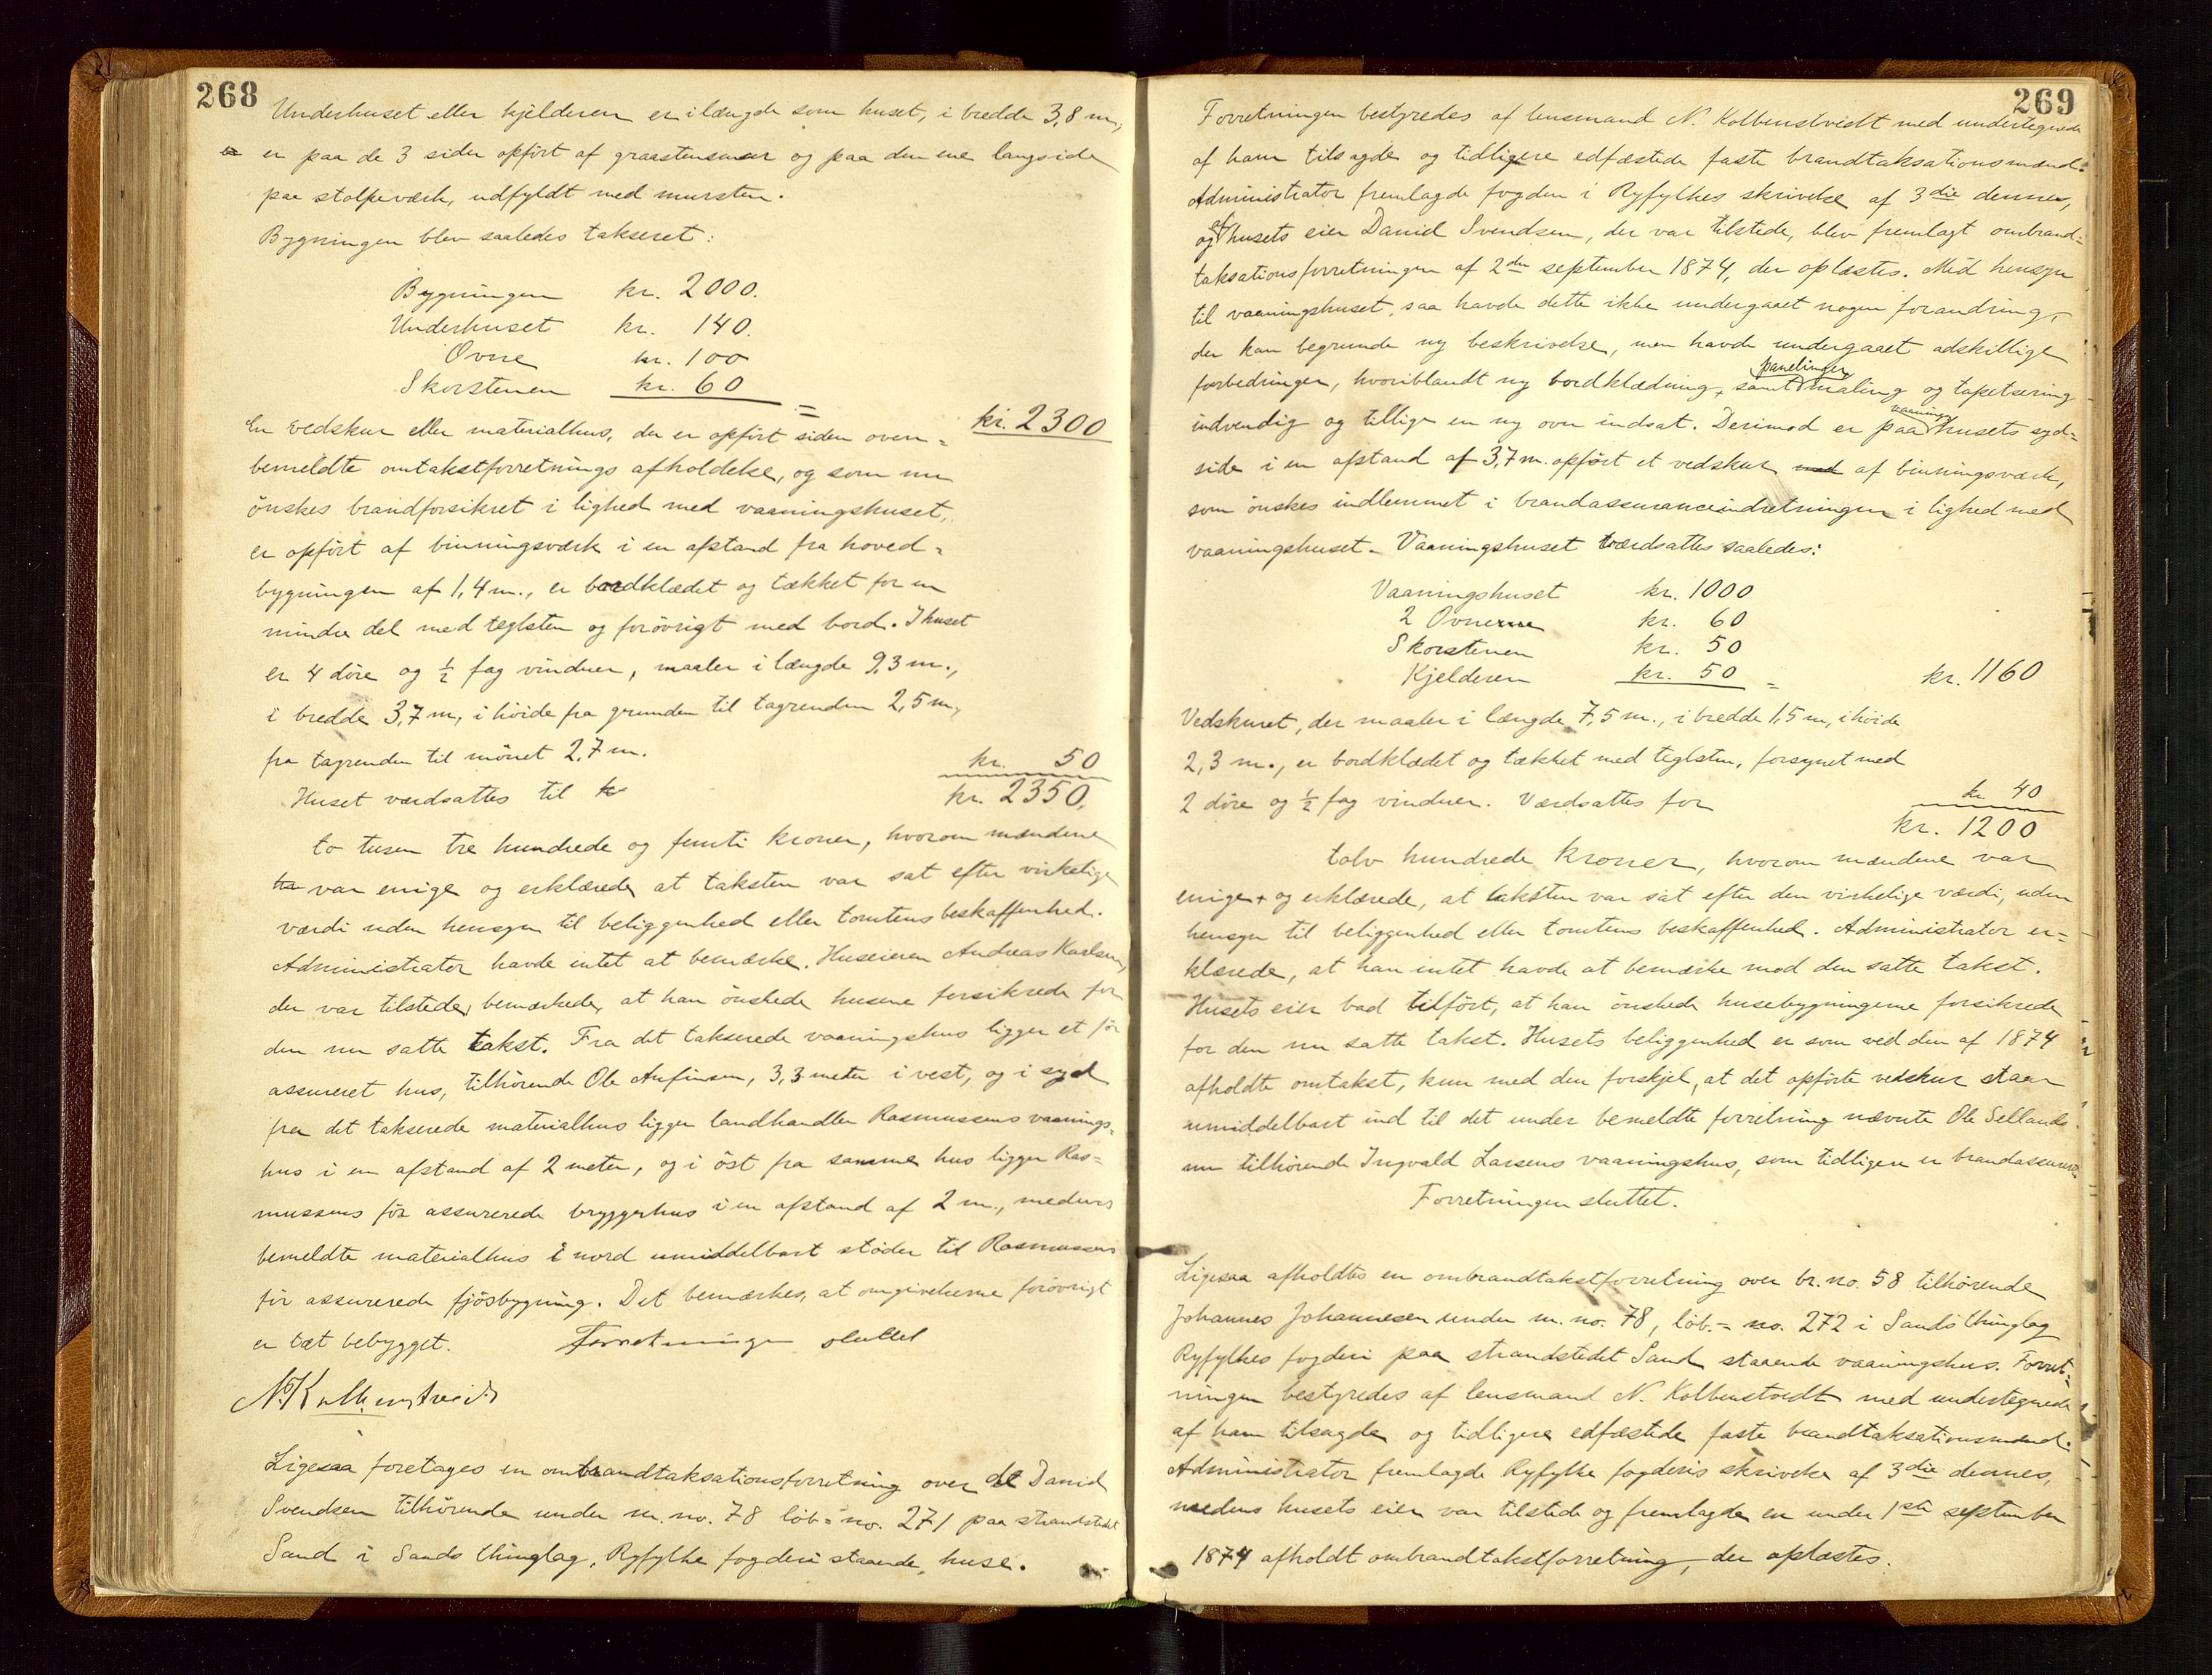 268
Underhuset eller kjelderen er i længde som huset, i bredde 3,8 m.,
er paa de 3 sider opført af graastensmur og paa den ene langside
paa stolpeværk, udfyldt med mursten.
Bygningen blev saaledes takseret:
Bygningen kr. 2000.
Underhuset kr. 140.
Ovne kr. 100
Skorstenen kr. 60 =
kr. 2300
En vedskur eller materialhus, der er opført siden oven=
bemeldte omtakstforretnings afholdelse, og som nu
ønskes brandforsikret i lighed med vaaningshuset,
er opført af binningsværk i en afstand fra hoved=
bygningen af 1,4 m., er bordklædet og tækket for en
mindre del med teglsten og forøvrigt med bord. I huset
er 4 døre og ½ fag vinduer, maaler i længde 9,3 m.,
i bredde 3,7 m, i høide fra grunden til tagrenden 2,5 m,
fra tagrenden til mønet 2,7 m.
Huset værdsattes til kr. 50
kr. 2350.
to tusen tre hundrede og femti kroner, hvorom mændene
var enige og erklærede at taksten var sat efter virkelige
værdi uden hensyn til beliggenhed eller tomtens beskaffenhed.
Administrator havde intet at bemærke. Huseieren Andreas Karlsen,
der var tilstede, bemærkede, at han ønskede husene forsikrede for
den nu satte takst. Fra det takserede vaaningshus ligger et før
assureret hus, tilhørende Ole Anfinsen, 3,3 meter i vest, og i syd
fra det takserede materialhus ligger landhandler Rasmussens vaanings=
hus i en afstand af 2 meter, og i øst fra samme hus ligger Ras=
mussens før assurerede bryggerhus i en afstand af 2 m., medens
bemeldte materialhus i nord umiddelbart støder til Rasmussens
før assurerede fjøsbygning. Det bemærkes, at omgivelserne forøvrigt
er tæt bebygget. Forretningen sluttet
N. Kolbenstvedt
Ligesaa foretages en ombrandtaksationsforretning over de Daniel
Svendsen tilhørende under m. no. 78 løb= no. 271 paa strandstedet
Sand i Sands thinglag, Ryfylke fogderi staaende, huse.
269
Forretningen bestyredes af lensmand N. Kolbenstvedt med undertegnede
af ham tilsagde og tidligere edfæstede faste brandtaksationsmænd.
Administrator fremlagde fogden i Ryfylkes skrivelse af 3die dennes,
og af husets eier Daniel Svendsen, der var tilstede, blev fremlagt ombrand=
taksationsforretningen af 2den september 1874, der oplæstes. Med hensyn
til vaaningshuset, saa havde dette ikke undergaaet nogen forandring,
der kan begrunde ny beskrivelse, men havde undergaaet adskillige
forbedringer, hvoriblandt ny bordklædning, samt panelinger, maling og tapetsering
indvendig og tillige en ny ovn indsat. Derimod er paa vaaningshusets syd=
side i en afstand af 3,7 m. opført et vedskur med af binningsværk,
som ønskes indlemmet i brandassuranceindretningen i lighed med
vaaningshuset. Vaaningshuset værdsattes saaledes:
Vaaningshuset kr. 1000
2 Ovne kr. 60
Skorstenen kr. 50
Kjelderen kr. 50 = kr. 1160
Vedskuret, der maaler i længde 7,5 m., i bredde 1,5 m, i høide
2,3 m., er bordklædet og tækket med teglsten, forsynet med
2 døre og ½ fag vinduer. Værdsattes for kr 40
kr. 1200
tolv hundrede kroner, hvorom mændene var
enige og erklærede, at taksten var sat efter den virkelige værdi, uden
hensyn til beliggenhed eller tomtens beskaffenhed. Administrator er=
klærede, at han intet havde at bemærke mod den satte takst.
Husets eier bad tilført, at han ønskede husebygningerne forsikrede
for den nu satte takst. Husets beliggenhed er som ved den af 1874
afholdte omtakst, kun med den forskjel, at det opførte vedskur staar
umiddelbart ind til det under bemeldte forretning nævnte Ole Sellands
nu tilhørende Ingvald Larsens vaaningshus, som tidligere er brandassureret.
Forretningen sluttet.
Ligesaa afholdtes en ombrandtakstforretning over br. no. 58 tilhørende
Johannes Johannesen under m. no. 78, løb.= no. 272 i Sands thinglag
Ryfylkes fogderi paa strandstedet Sand staaende vaaningshus. Forret=
ningen bestyredes af lensmand N. Kolbenstvedt med undertegnede
af ham tilsagde og tidligere edfæstede faste brandtaksationsmænd.
Administrator fremlagde Ryfylke fogderis skrivelse af 3die dennes,
medens husets eier var tilstede og fremlagde en under 1ste september
1874 afholdt ombrandtakstforretning, der oplæstes.